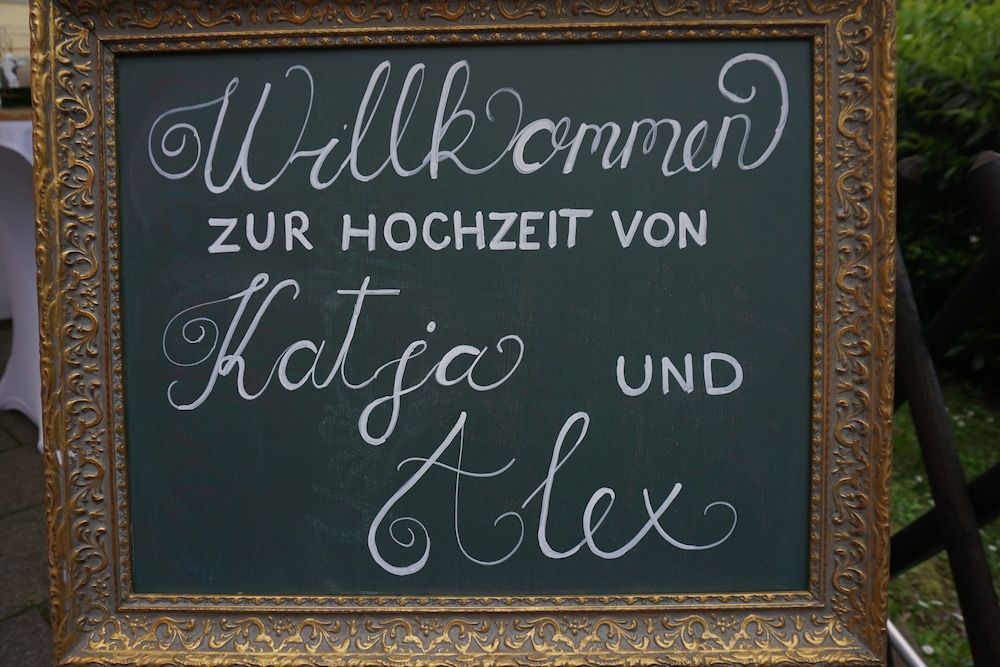 Willkommen
ZUR HOCHZEIT VON
Katja UND
Alex